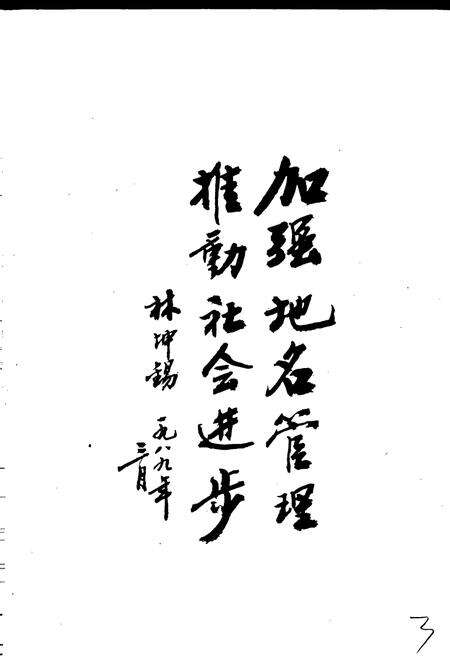 加强地名管理
推动社会进步
林坤锡 一九八九年
三月
3